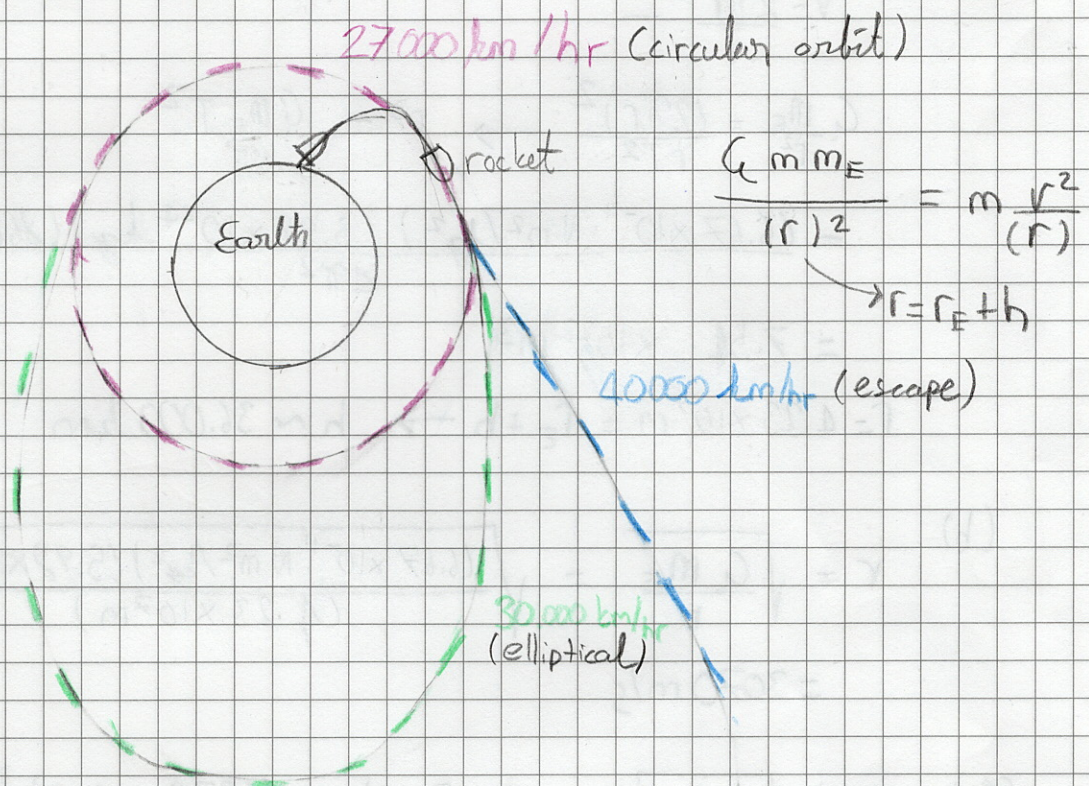 27000 km/hr (circular orbit)
rocket
Earth
G m mE / (r)² = m v² / (r)
r = rE + h
40000 km/hr (escape)
30000 km/hr
(elliptical)